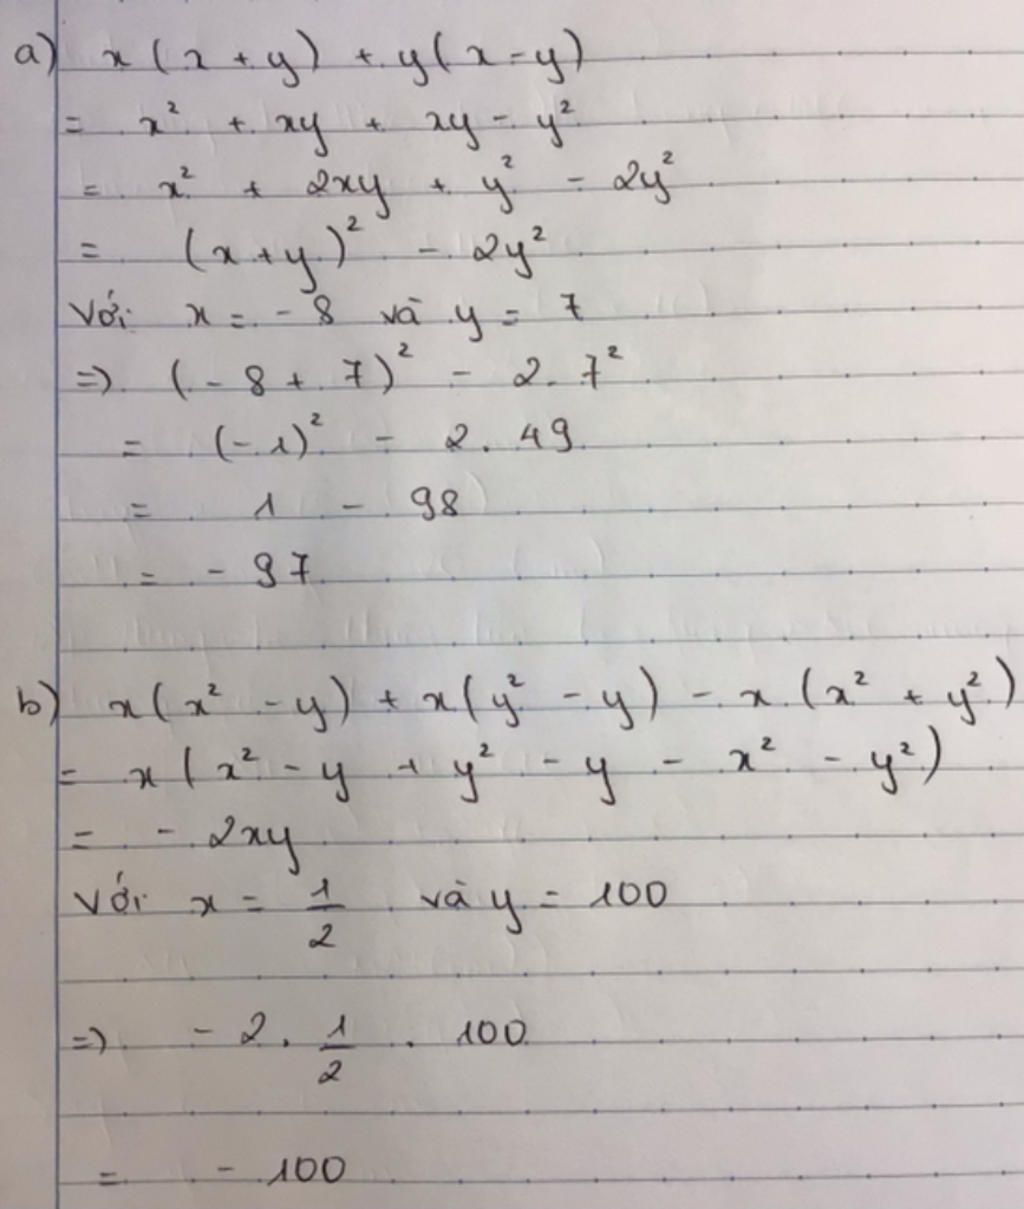 a) x(x+y) + y(x-y)
= x² + xy + xy - y²
= x² + 2xy + y² - 2y²
= (x+y)² - 2y²
Với x = -8 và y = 7
=> (-8 + 7)² - 2.7²
= (-1)² - 2.49
= 1 - 98
= -97
b) x(x² - y) + x(y² - y) - x(x² + y²)
= x(x² - y + y² - y - x² - y²)
= -2xy
Với x = 1/2 và y = 100
=> -2 . 1/2 . 100
= -100